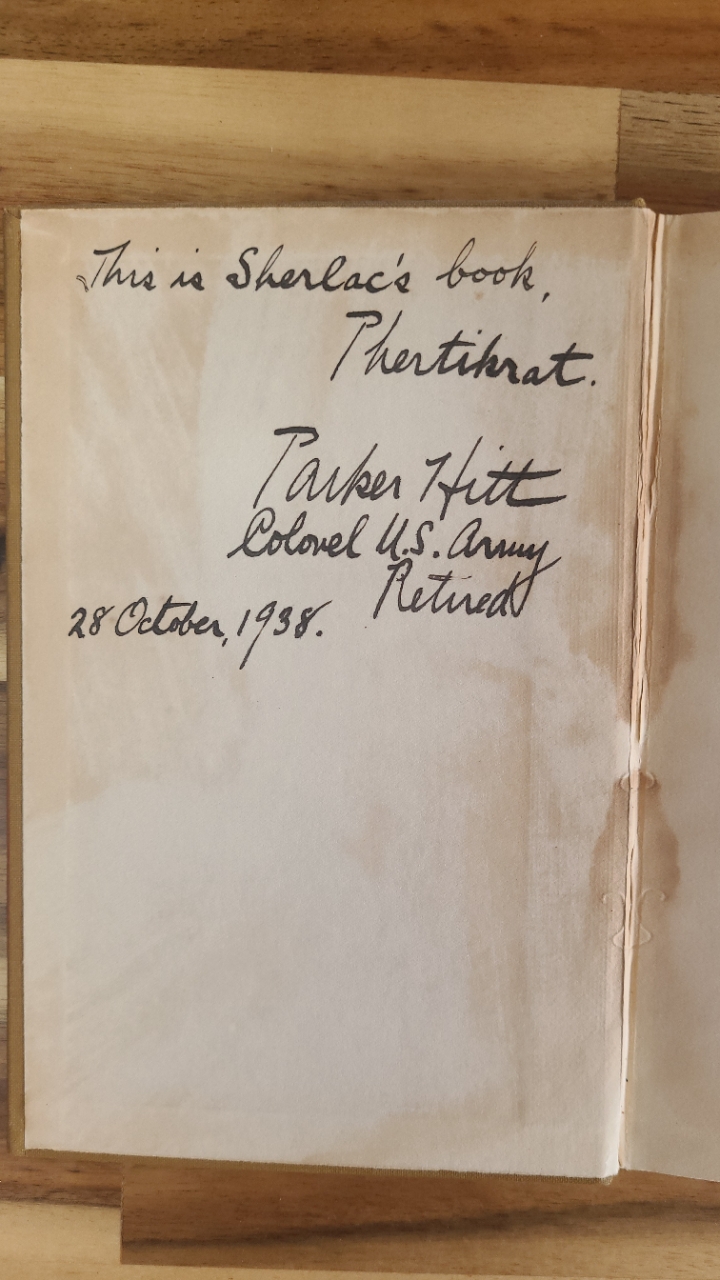 This is Sherlac's book,
Phertikrat.
Parker Hitt
Colonel U.S. Army
Retired
28 October, 1938.